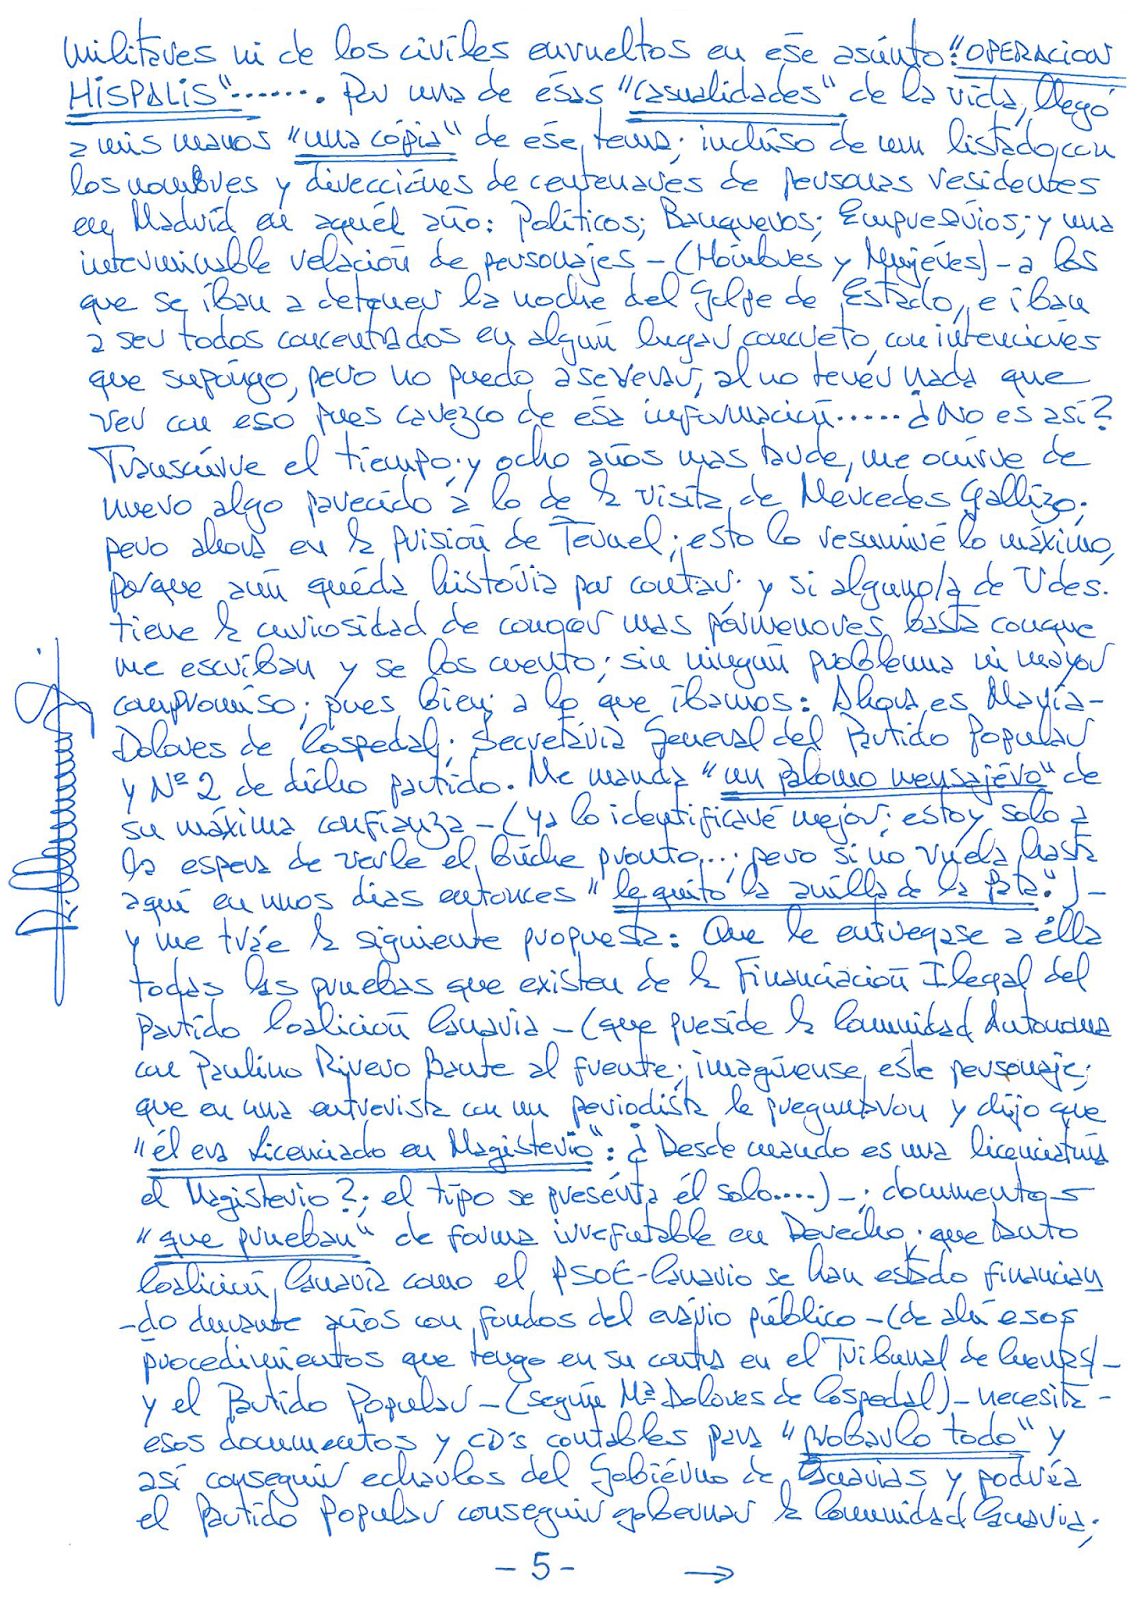 militares ni de los civiles envueltos en ese asúnto: "OPERACION
HISPALIS"....... Por una de ésas "casualidades" de la vida, llegó
a mis manos "una cópia" de ese tema; incluso de un listado con
los nombres y direcciónes de centenares de personas residentes
en Madrid en aquél año: Políticos; Banqueros; Empresários; y una
interminable relación de personajes -(Hómbres y Mujéres)- a los
que se íban a detener la noche del Golpe de Estado, e íban
a ser todos concentrados en algún lugar concreto, con intenciónes
que supóngo, pero no puedo aseverar, al no tenér nada que
ver con eso pues carezco de esa información..... ¿No es así?
Transcúrre el tiempo; y ocho años mas tarde, me ocúrre de
nuevo algo parecido a lo de la visita de Mércedes Gallizo;
pero ahora en la prisión de Teruel; esto lo resumiré lo máximo,
porque aún quéda história por contar; y si alguno/a de Udes.
tiene la curiosidad de conocer mas pórmenores, basta conque
me escríban y se los cuento; sin ningún problema ni mayor
compromíso; pues bien; a lo que íbamos: Ahora es María-
Dolores de Cospedal; Secretária General del Partido Popular
y Nº 2 de dicho partido. Me manda "un palomo mensajéro" de
su máxima confianza -(Ya lo identificaré mejor; estoy solo a
la espera de verle el búche pronto...; pero si no vuela hasta
aquí en unos dias entonces "le quito la anilla de la pata".)-
y me tráe la siguiente propuesta: Que le entregase a élla
todas las pruebas que existen de la Financiación Ilegal del
Partido Coalición Canaria -(que preside la Comunidad Autonoma
con Paulino Rivero Baute al frente; imagínense, este personaje;
que en una entrevista con un periodista le preguntaron y dijo que
"él era Licenciado en Magisterio": ¿Desde cuando es una licenciatura
el Magisterio?; el típo se presénta él solo....)-; documentos
"que prueban" de forma irrefutable en Derecho; que tanto
Coalición Canaria como el PSOE-Canario se han estado financian
-do durante años con fondos del erario público -(de ahí esos
procedimientos que tengo en su contra en el Tribunal de Cuentas)-
y el Partido Popular -(según Mª Dolores de Cospedal)- necesita-
esos documentos y CD's contables para "probarlo todo" y
así conseguir echarlos del Gobiérno de Canarias y podría
el Partido Popular conseguir gobernar la Comunidad Canaria;
- 5 - →